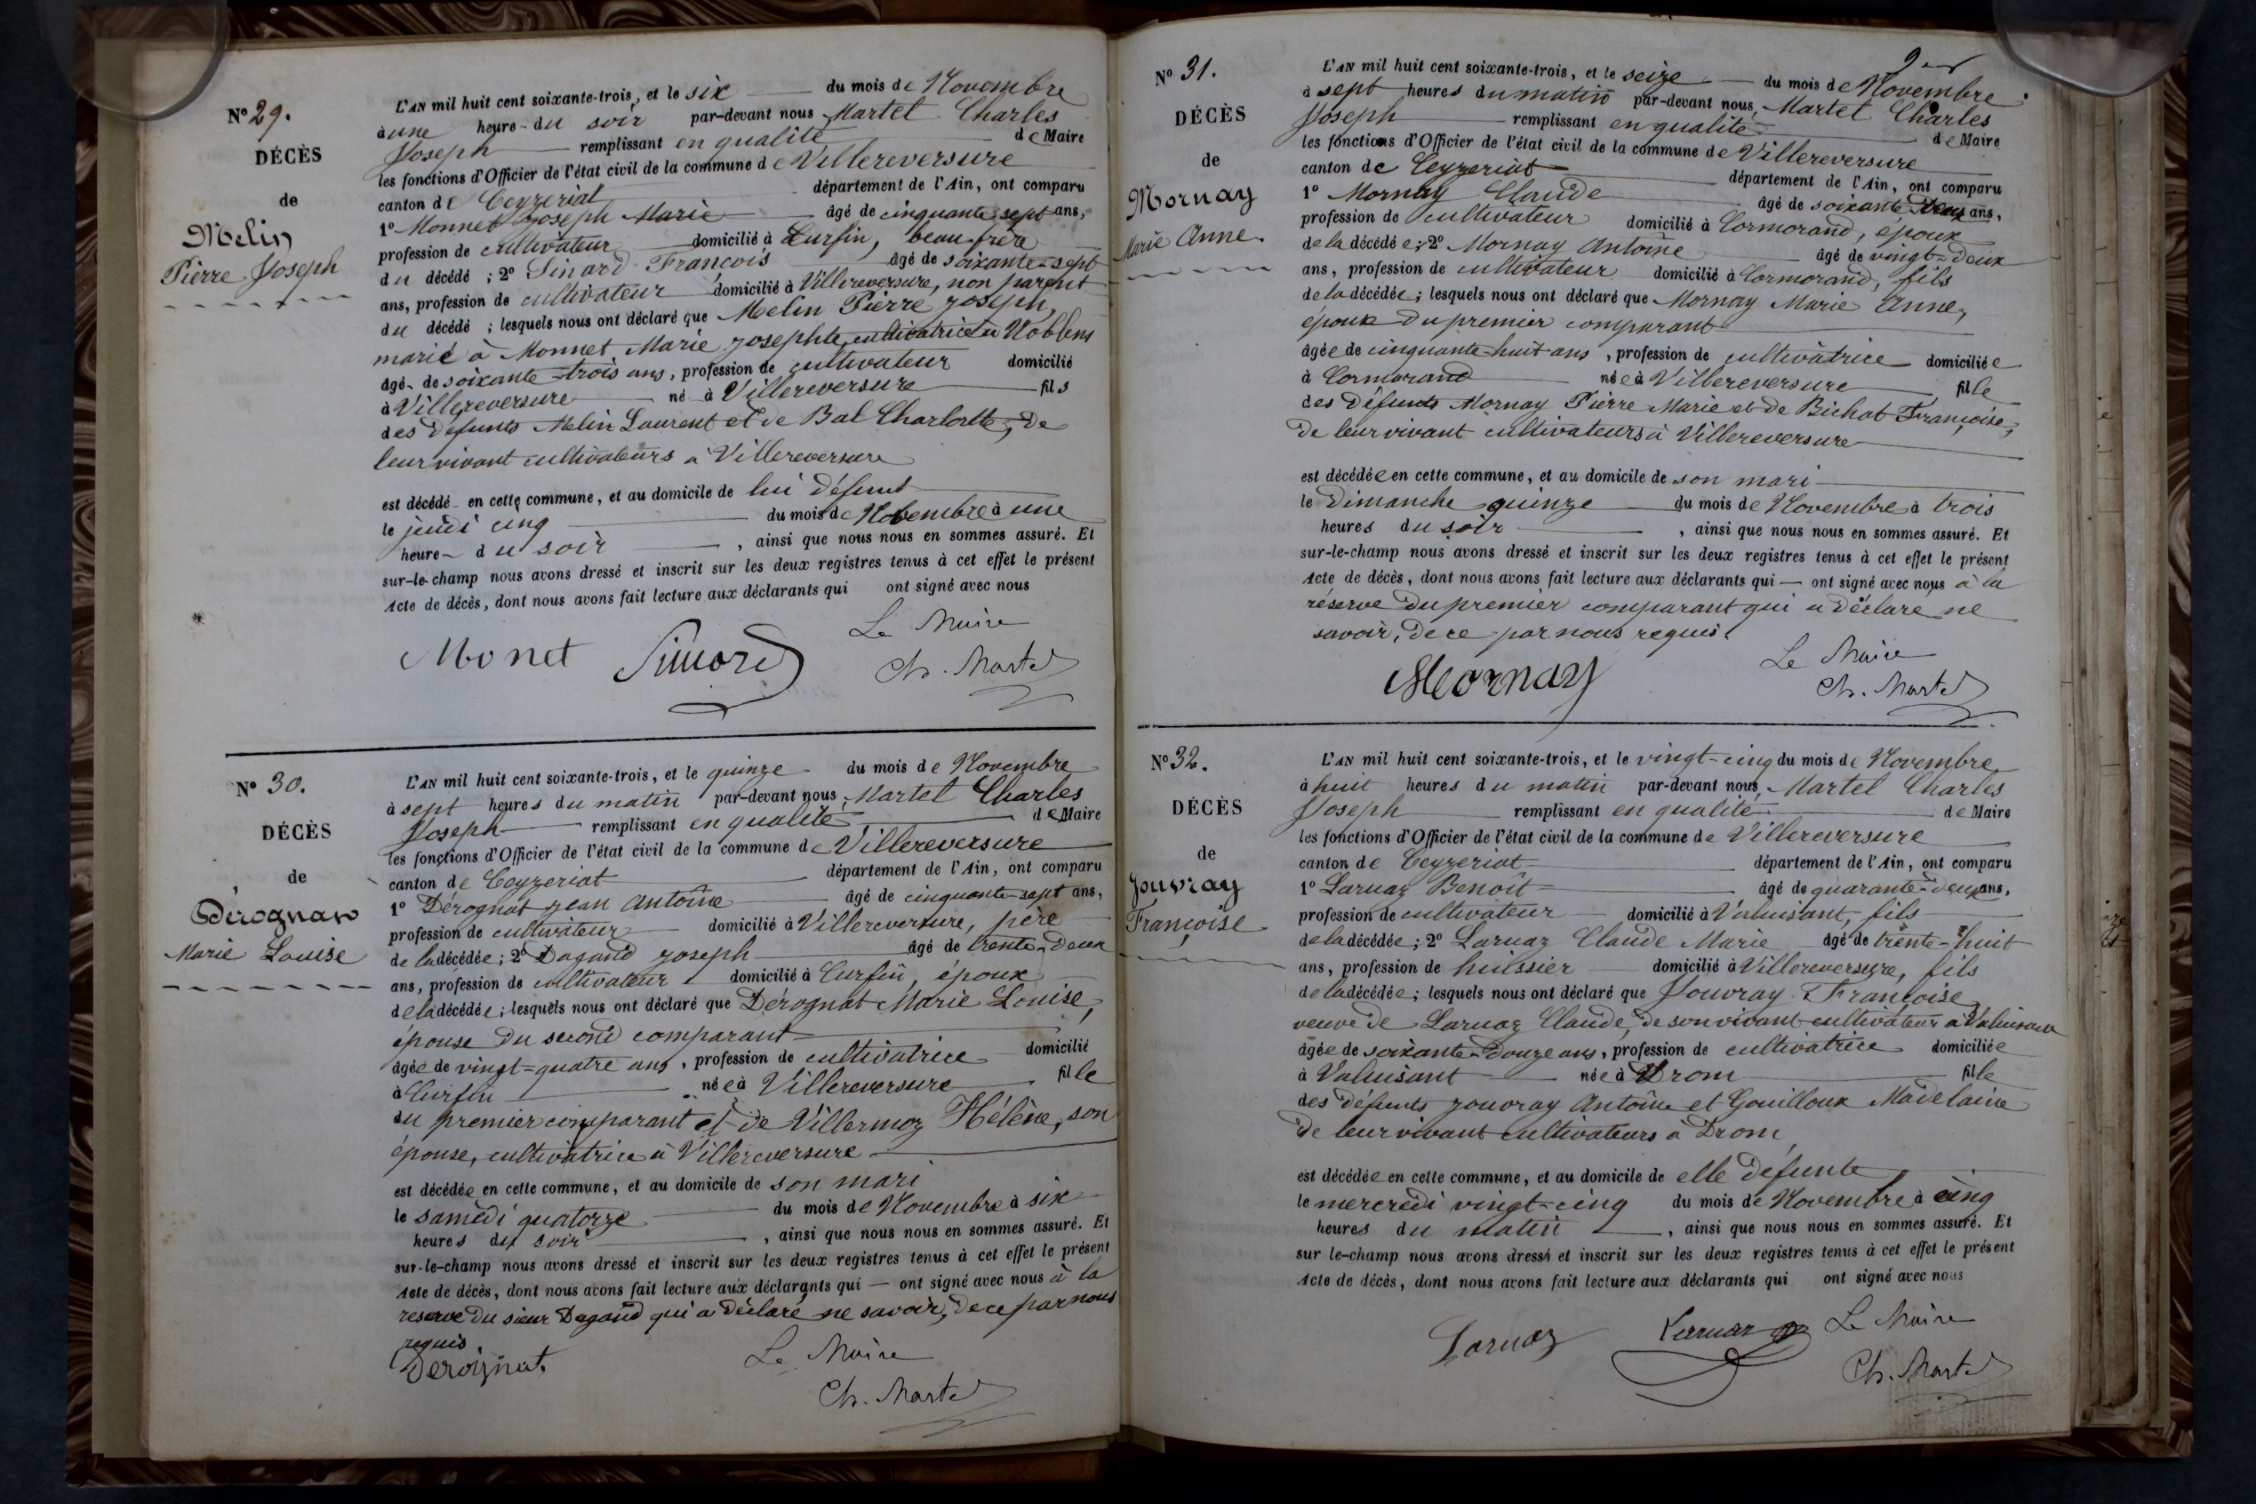 N° 29.
DÉCÈS
de
Melin
Pierre Joseph
L'AN mil huit cent soixante-trois, et le six du mois de Novembre
à une heure du soir par-devant nous Martel Charles
Joseph remplissant en qualité de Maire
les fonctions d'Officier de l'état civil de la commune de Villereversure
canton de Ceyzeriat département de l'Ain, ont comparu
1° Monnet Joseph Marie âgé de cinquante-sept ans,
profession de cultivateur domicilié à Curfin, beau-frère
du décédé ; 2° Sinard François âgé de soixante-sept
ans, profession de cultivateur domicilié à Villereversure, non parent
du décédé ; lesquels nous ont déclaré que Melin Pierre Joseph,
marié à Monnet Marie Josephte, cultivatrice à Noblens
âgé de soixante-trois ans, profession de cultivateur domicilié
à Villereversure né à Villereversure fils
des défunts Melin Laurent et de Bal Charlotte, de
leur vivant cultivateurs à Villereversure
est décédé en cette commune, et au domicile de lui défunt
le jeudi cinq du mois de Novembre à une
heure du soir , ainsi que nous nous en sommes assuré. Et
sur-le-champ nous avons dressé et inscrit sur les deux registres tenus à cet effet le présent
Acte de décès, dont nous avons fait lecture aux déclarants qui ont signé avec nous
Le Maire
Monet Simord Ch. Martel
N° 30.
DÉCÈS
de
Dérognat
Marie Louise
L'AN mil huit cent soixante-trois, et le quinze du mois de Novembre
à sept heures du matin par-devant nous Martel Charles
Joseph remplissant en qualité de Maire
les fonctions d'Officier de l'état civil de la commune de Villereversure
canton de Ceyzeriat département de l'Ain, ont comparu
1° Dérognat Jean Antoine âgé de cinquante-sept ans,
profession de cultivateur domicilié à Villereversure, père
de la décédée ; 2° Dagand Joseph âgé de trente-deux
ans, profession de cultivateur domicilié à Curfin, époux
de la décédée ; lesquels nous ont déclaré que Dérognat Marie Louise,
épouse du second comparant
âgée de vingt-quatre ans, profession de cultivatrice domicilié
à Curfin née à Villereversure fille
du premier comparant et de Villermoz Hélène, son
épouse, cultivatrice à Villereversure
est décédée en cette commune, et au domicile de son mari
le samedi quatorze du mois de Novembre à six
heures du soir , ainsi que nous nous en sommes assuré. Et
sur-le-champ nous avons dressé et inscrit sur les deux registres tenus à cet effet le présent
Acte de décès, dont nous avons fait lecture aux déclarants qui — ont signé avec nous à la
réserve du sieur Dagand qui a déclaré ne savoir, de ce par nous
requis
Deroignat. Le Maire
Ch. Martel
N° 31.
DÉCÈS
de
Mornay
Marie Anne
L'AN mil huit cent soixante-trois, et le seize du mois de Novembre
à sept heures du matin par-devant nous Martel Charles
Joseph remplissant en qualité de Maire
les fonctions d'Officier de l'état civil de la commune de Villereversure
canton de Ceyzeriat département de l'Ain, ont comparu
1° Mornay Claude âgé de soixante ans,
profession de cultivateur domicilié à Cormorand, époux
de la décédée ; 2° Mornay Antoine âgé de vingt-deux
ans, profession de cultivateur domicilié à Cormorand, fils
de la décédée ; lesquels nous ont déclaré que Mornay Marie Anne,
épouse du premier comparant
âgée de cinquante-huit ans, profession de cultivatrice domiciliée
à Cormorand née à Villereversure fille
des défunts Mornay Pierre Marie et de Bichat Françoise,
de leur vivant cultivateurs à Villereversure
est décédée en cette commune, et au domicile de son mari
le Dimanche quinze du mois de Novembre à trois
heures du soir , ainsi que nous nous en sommes assuré. Et
sur-le-champ nous avons dressé et inscrit sur les deux registres tenus à cet effet le présent
Acte de décès, dont nous avons fait lecture aux déclarants qui — ont signé avec nous à la
réserve du premier comparant qui a déclaré ne
savoir, de ce par nous requis.
Le Maire
Mornay Ch. Martel
N° 32.
DÉCÈS
de
Jouvray
Françoise
L'AN mil huit cent soixante-trois, et le vingt-cinq du mois de Novembre
à huit heures du matin par-devant nous Martel Charles
Joseph remplissant en qualité de Maire
les fonctions d'Officier de l'état civil de la commune de Villereversure
canton de Ceyzeriat département de l'Ain, ont comparu
1° Laruaz Benoît âgé de quarante-deux ans,
profession de cultivateur domicilié à Valuisant, fils
de la décédée ; 2° Laruaz Claude Marie âgé de trente-huit
ans, profession de huissier domicilié à Villereversure, fils
de la décédée ; lesquels nous ont déclaré que Jouvray Françoise
veuve de Laruaz Claude, de son vivant cultivateur à Valuisant
âgée de soixante-douze ans, profession de cultivatrice domiciliée
à Valuisant née à Drom fille
des défunts Jouvray Antoine et Gouilloux Madelaine
de leur vivant cultivateurs à Drom
est décédée en cette commune, et au domicile de elle défunte
le mercredi vingt-cinq du mois de Novembre à cinq
heures du matin , ainsi que nous nous en sommes assuré. Et
sur le-champ nous avons dressé et inscrit sur les deux registres tenus à cet effet le présent
Acte de décès, dont nous avons fait lecture aux déclarants qui ont signé avec nous
Laruaz Laruaz Le Maire
Ch. Martel